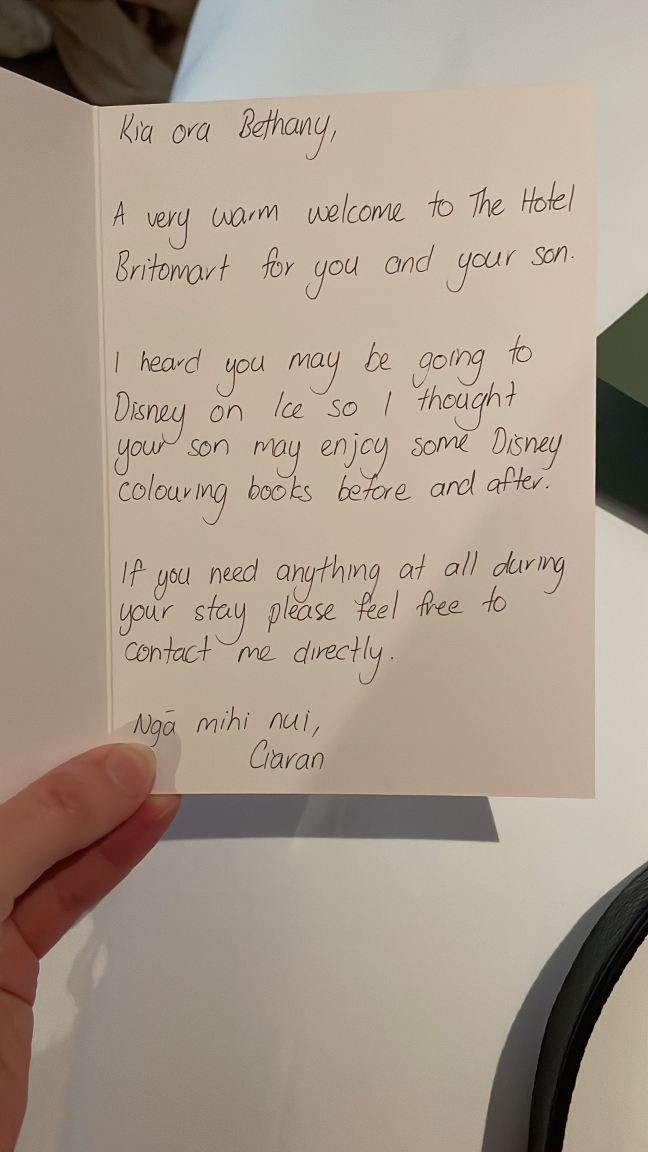 Kia ora Bethany,
A very warm welcome to The Hotel
Britomart for you and your son.
I heard you may be going to
Disney on Ice so I thought
your son may enjoy some Disney
colouring books before and after.
If you need anything at all during
your stay please feel free to
contact me directly.
Ngā mihi nui,
Ciaran